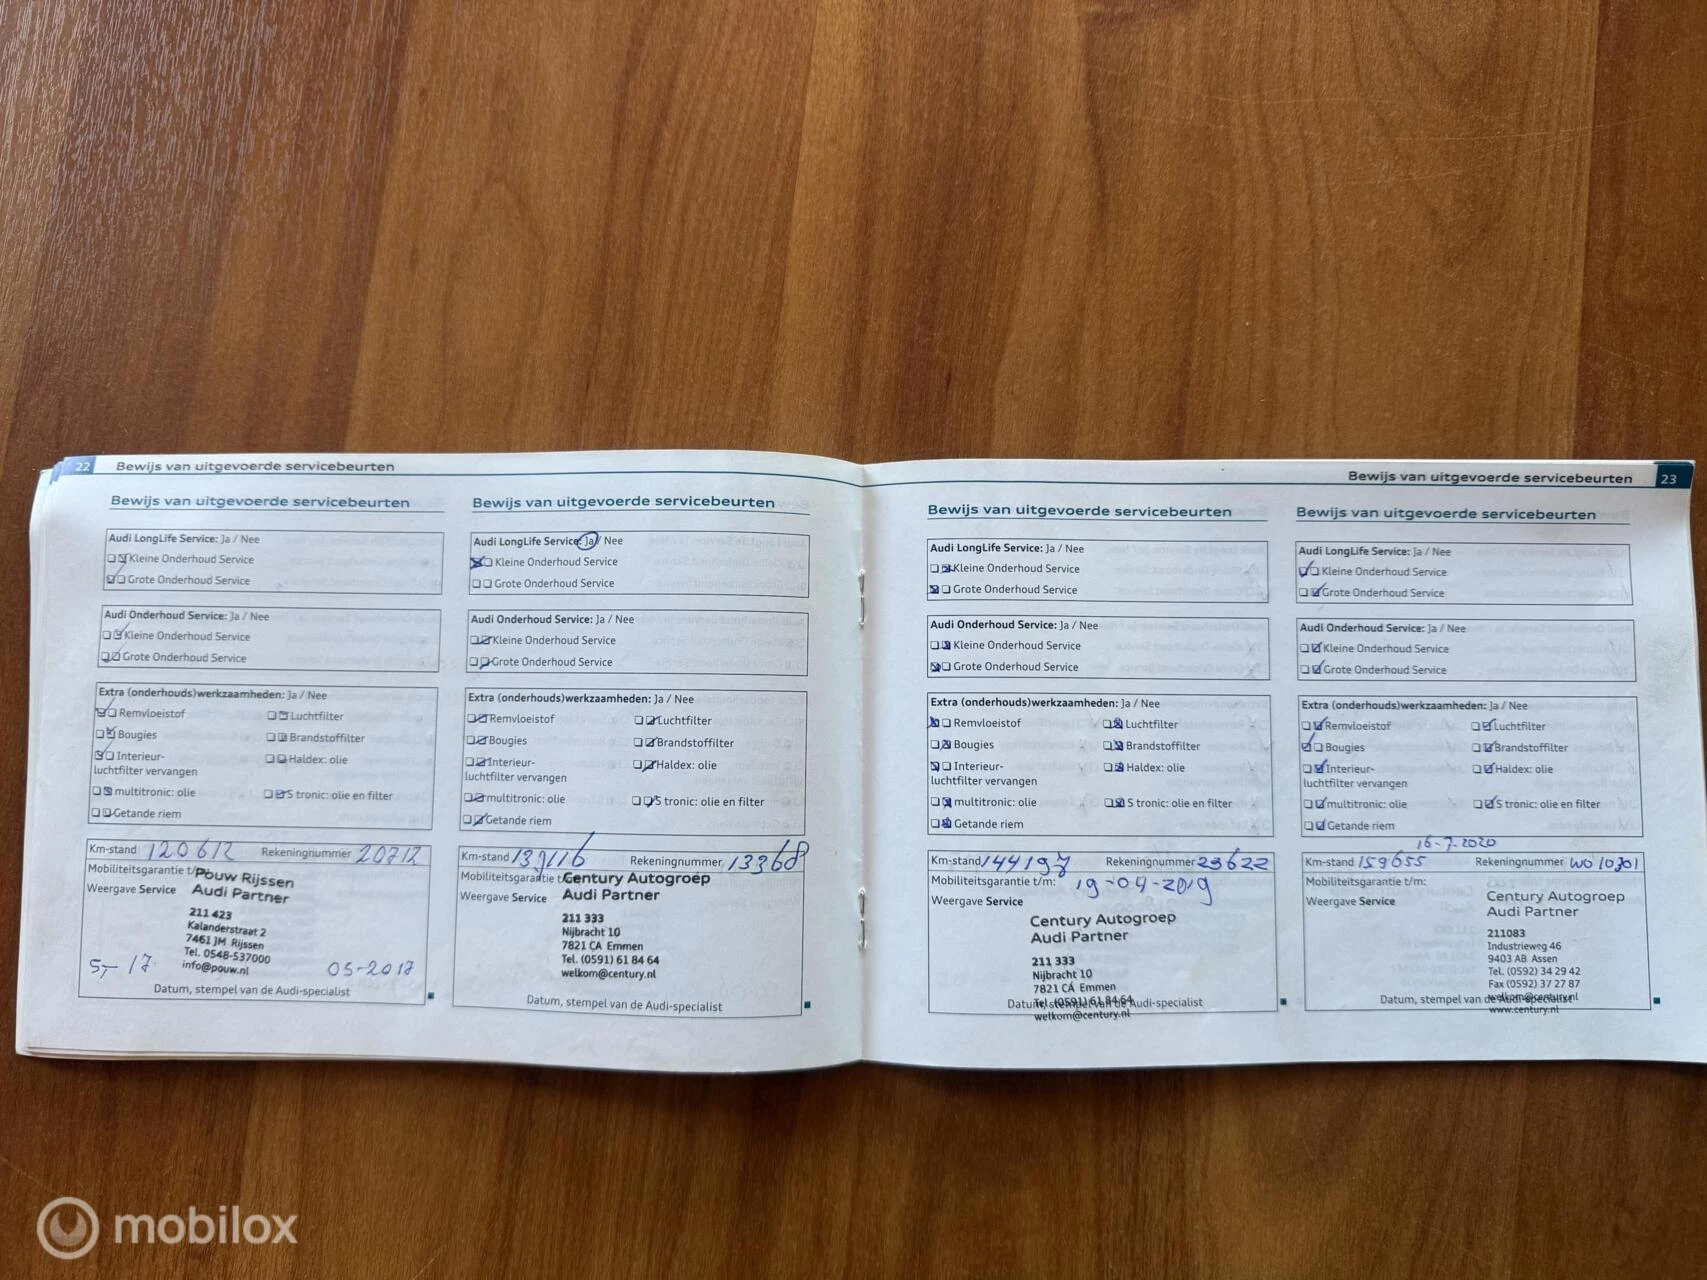 22 Bewijs van uitgevoerde servicebeurten
Bewijs van uitgevoerde servicebeurten
Audi LongLife Service: Ja / Nee
Kleine Onderhoud Service
Grote Onderhoud Service
Audi Onderhoud Service: Ja / Nee
Kleine Onderhoud Service
Grote Onderhoud Service
Extra (onderhouds)werkzaamheden: Ja / Nee
Remvloeistof Luchtfilter
Bougies Brandstoffilter
Interieur- Haldex: olie
luchtfilter vervangen
multitronic: olie S tronic: olie en filter
Getande riem
Km-stand 120612 Rekeningnummer 20712
Mobiliteitsgarantie t/m:
Weergave Service
Pouw Rijssen
Audi Partner
211 423
Kalanderstraat 2
7461 JM Rijssen
Tel. 0548-537000
info@pouw.nl
5-17 05-2017
Datum, stempel van de Audi-specialist
Bewijs van uitgevoerde servicebeurten
Audi LongLife Service: Ja / Nee
Kleine Onderhoud Service
Grote Onderhoud Service
Audi Onderhoud Service: Ja / Nee
Kleine Onderhoud Service
Grote Onderhoud Service
Extra (onderhouds)werkzaamheden: Ja / Nee
Remvloeistof Luchtfilter
Bougies Brandstoffilter
Interieur- Haldex: olie
luchtfilter vervangen
multitronic: olie S tronic: olie en filter
Getande riem
Km-stand Rekeningnummer 13368
Mobiliteitsgarantie t/m:
Weergave Service
Century Autogroep
Audi Partner
211 333
Nijbracht 10
7821 CA Emmen
Tel. (0591) 61 84 64
welkom@century.nl
Datum, stempel van de Audi-specialist
Bewijs van uitgevoerde servicebeurten 23
Bewijs van uitgevoerde servicebeurten
Audi LongLife Service: Ja / Nee
Kleine Onderhoud Service
Grote Onderhoud Service
Audi Onderhoud Service: Ja / Nee
Kleine Onderhoud Service
Grote Onderhoud Service
Extra (onderhouds)werkzaamheden: Ja / Nee
Remvloeistof Luchtfilter
Bougies Brandstoffilter
Interieur- Haldex: olie
luchtfilter vervangen
multitronic: olie S tronic: olie en filter
Getande riem
Km-stand 144197 Rekeningnummer 23622
Mobiliteitsgarantie t/m: 19-04-2019
Weergave Service
Century Autogroep
Audi Partner
211 333
Nijbracht 10
7821 CA Emmen
Tel. (0591) 61 84 64
Datum, stempel van de Audi-specialist
welkom@century.nl
Bewijs van uitgevoerde servicebeurten
Audi LongLife Service: Ja / Nee
Kleine Onderhoud Service
Grote Onderhoud Service
Audi Onderhoud Service: Ja / Nee
Kleine Onderhoud Service
Grote Onderhoud Service
Extra (onderhouds)werkzaamheden: Ja / Nee
Remvloeistof Luchtfilter
Bougies Brandstoffilter
Interieur- Haldex: olie
luchtfilter vervangen
multitronic: olie S tronic: olie en filter
Getande riem
16-7-2020
Km-stand 159655 Rekeningnummer WO10301
Mobiliteitsgarantie t/m:
Weergave Service
Century Autogroep
Audi Partner
211083
Industrieweg 46
9403 AB Assen
Tel. (0592) 34 29 42
Fax (0592) 37 27 87
welkom@century.nl
Datum, stempel van de Audi-specialist
www.century.nl
mobilox